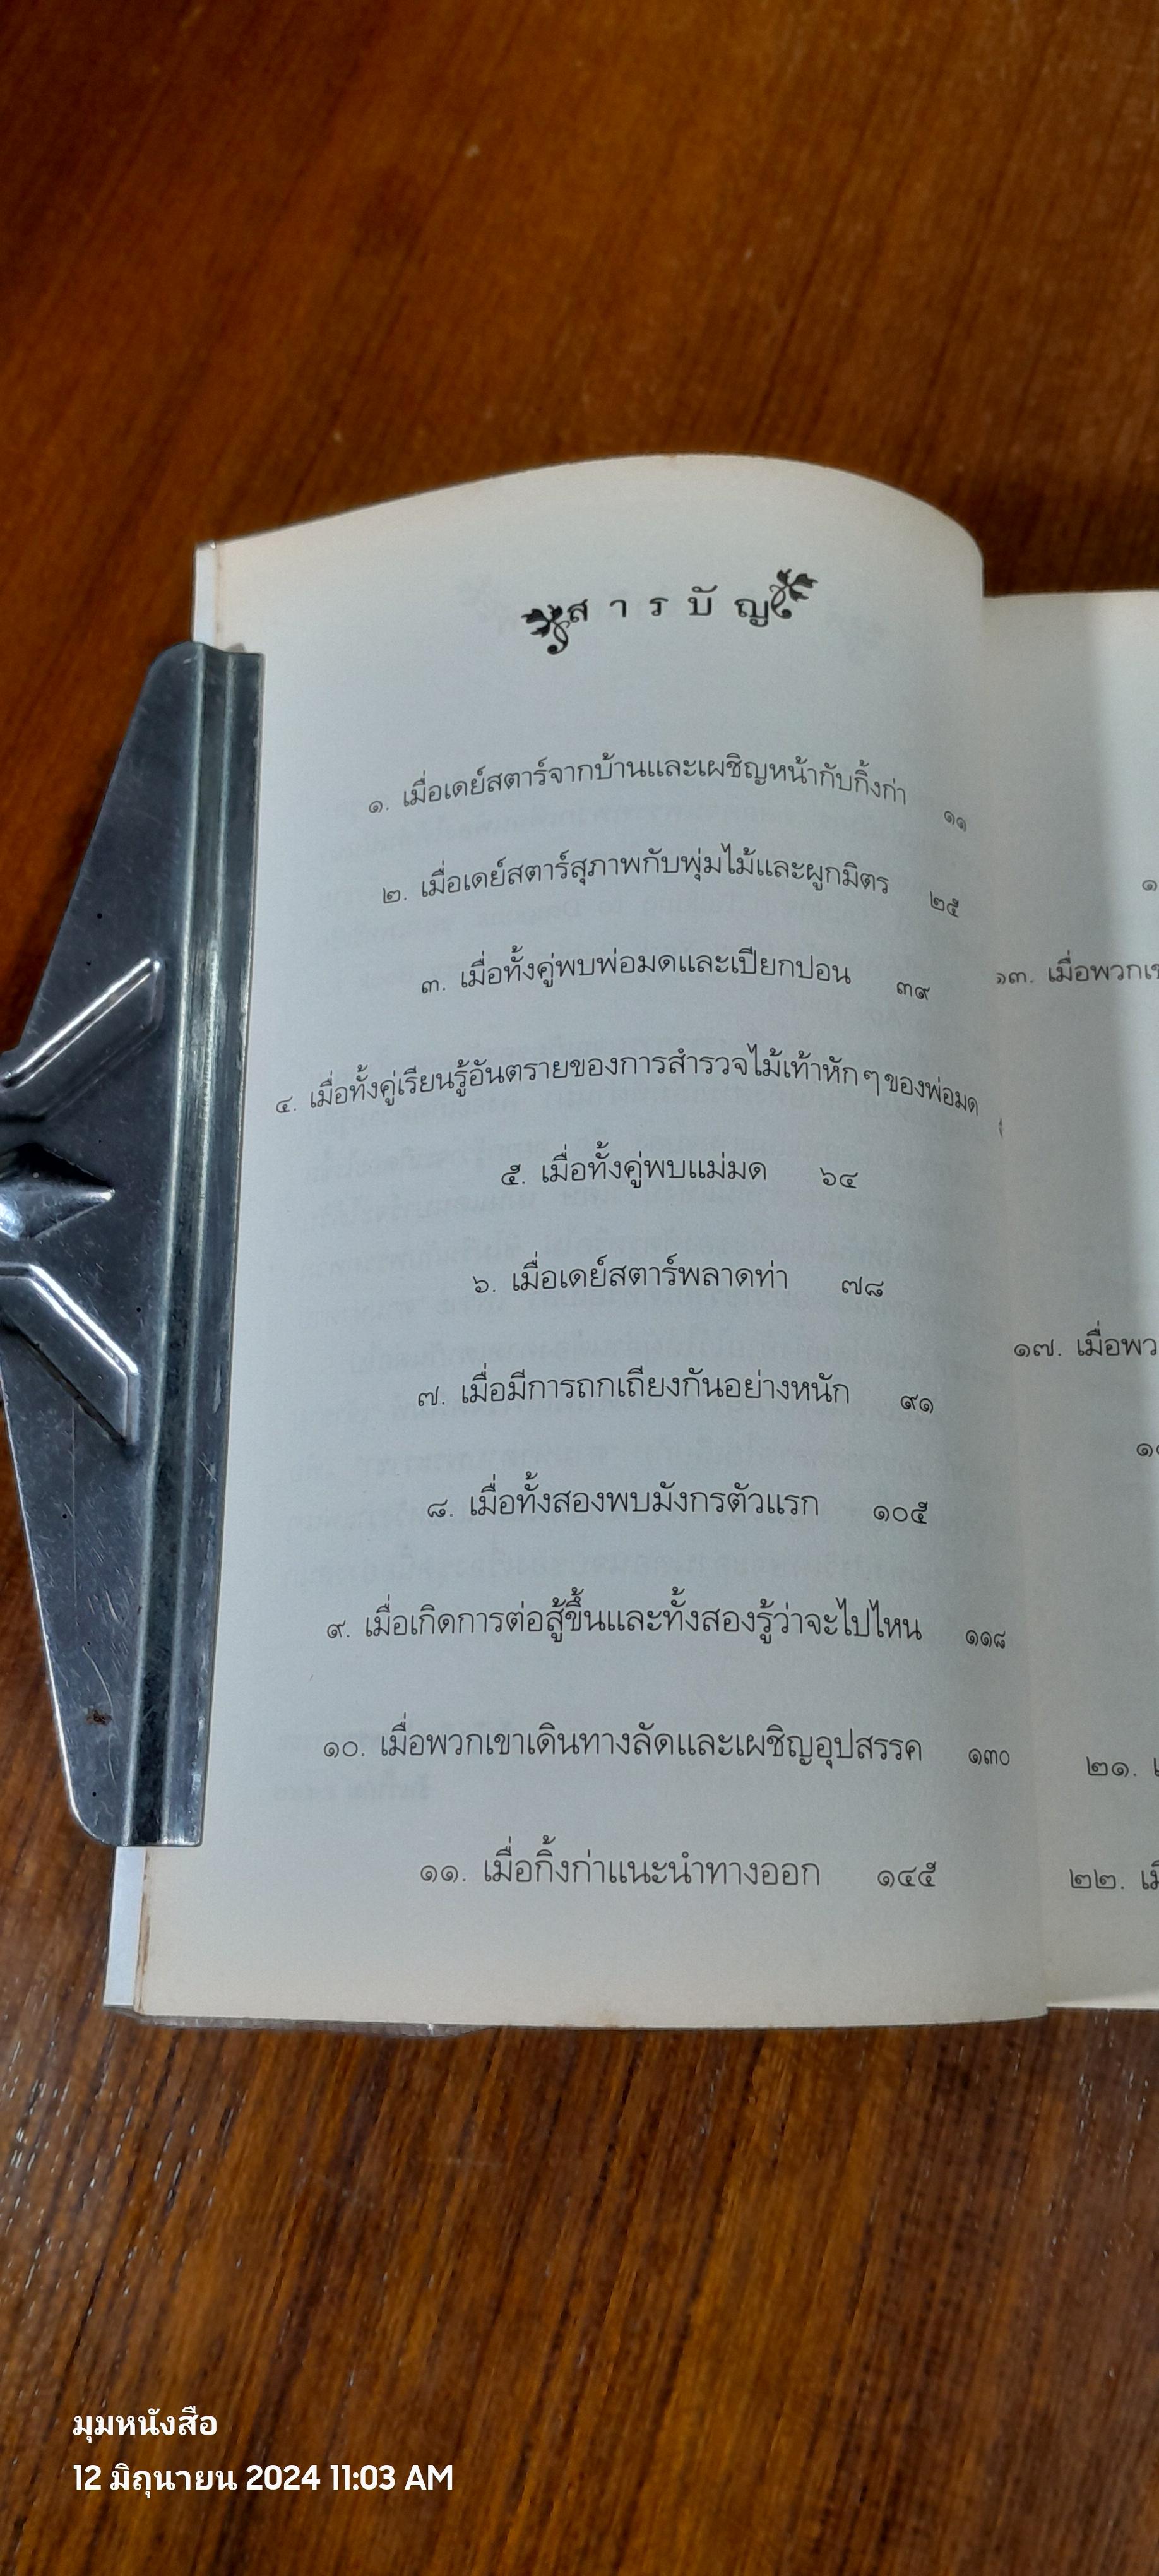 สารบัญ
๑. เมื่อเดย์สตาร์จากบ้านและเผชิญหน้ากับกิ้งก่า ๑๑
๒. เมื่อเดย์สตาร์สุภาพกับพุ่มไม้และผูกมิตร ๒๕
๓. เมื่อทั้งคู่พบพ่อมดและเปียกปอน ๓๙
๔. เมื่อทั้งคู่เรียนรู้อันตรายของการสำรวจไม้เท้าหัก ๆ ของพ่อมด
๕. เมื่อทั้งคู่พบแม่มด ๖๔
๖. เมื่อเดย์สตาร์พลาดท่า ๗๘
๗. เมื่อมีการถกเถียงกันอย่างหนัก ๙๑
๘. เมื่อทั้งสองพบมังกรตัวแรก ๑๐๕
๙. เมื่อเกิดการต่อสู้ขึ้นและทั้งสองรู้ว่าจะไปไหน ๑๑๘
๑๐. เมื่อพวกเขาเดินทางลัดและเผชิญอุปสรรค ๑๓๐
๑๑. เมื่อกิ้งก่าแนะนำทางออก ๑๔๕
๑๓. เมื่อพวกเข
๑๗. เมื่อพว
๒๑.
๒๒.
มุมหนังสือ
12 มิถุนายน 2024 11:03 AM